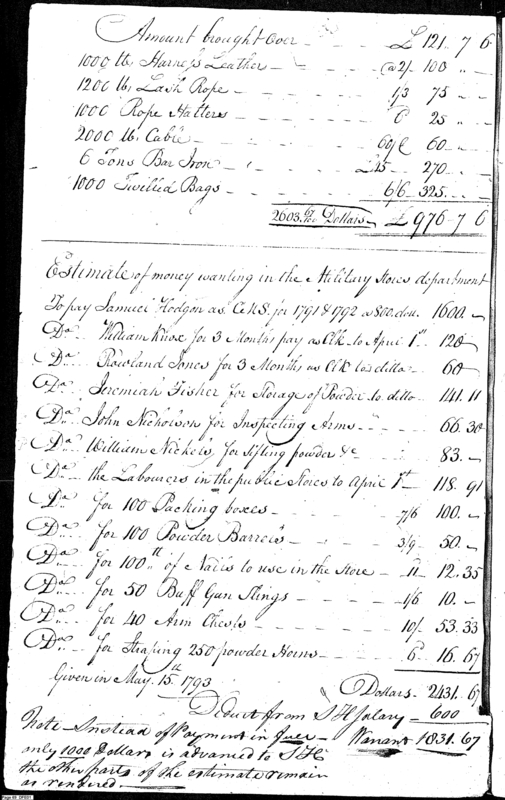 Amount brought Over - - £ 121 - 7 6
1000 lb, Harness Leather - - @2/- 100 " -
1200 lb, Lash Rope - - 1/3 75 - -
1000 Rope Halters - - 6d 25 " -
2000 lb. Cable - - 60/C 60 - -
6 Tons Bar Iron - - £45 - 270 - -
1000 Twilled Bags - - 6/6 - 325. - -
2603. Dollars - £ 976 - 7 6
Estimate of money wanting in the Military Stores department
To pay Samuel Hodgdon as C.M.S. for 1791 & 1792 a 800. dolls. 1600. -
Do. William Knox for 3 Months pay as Clk to April 1st 120 -
Do. Rowland Jones for 3 Months as Clk to ditto - 60 -
Do. Jeremiah Fisher for Storage of Powder to ditto 141. 11
Do. John Nicholson for Inspecting Arms - - 66. 30
Do. William Nickels, for sifting powder &c 83. -
Do. the Labourers in the public Stores to April 1st - 118. 91
Do. for 100 Packing boxes - - 7/6 100. -
Do. for 100 Powder Barrels - - 3/9 - 50. -
Do. for 100 lb of Nails to use in the Store - 11 - 12. 35
Do. for 50 Buff Gun Slings - - 1/6 10. -
Do. for 40 Arm Chests - - 10/- 53. 33
Do. for Scraping 250 powder Horns - - 6d 16. 67
Given in May 15th 1793
Dollars - 2431. 67
Deduct from S H Salary - 600
Note - Instead of Payment in full - Warrant 1831. 67
only 1000 Dollars is advanced to S. H
the other parts of the estimate remain
as rendered.